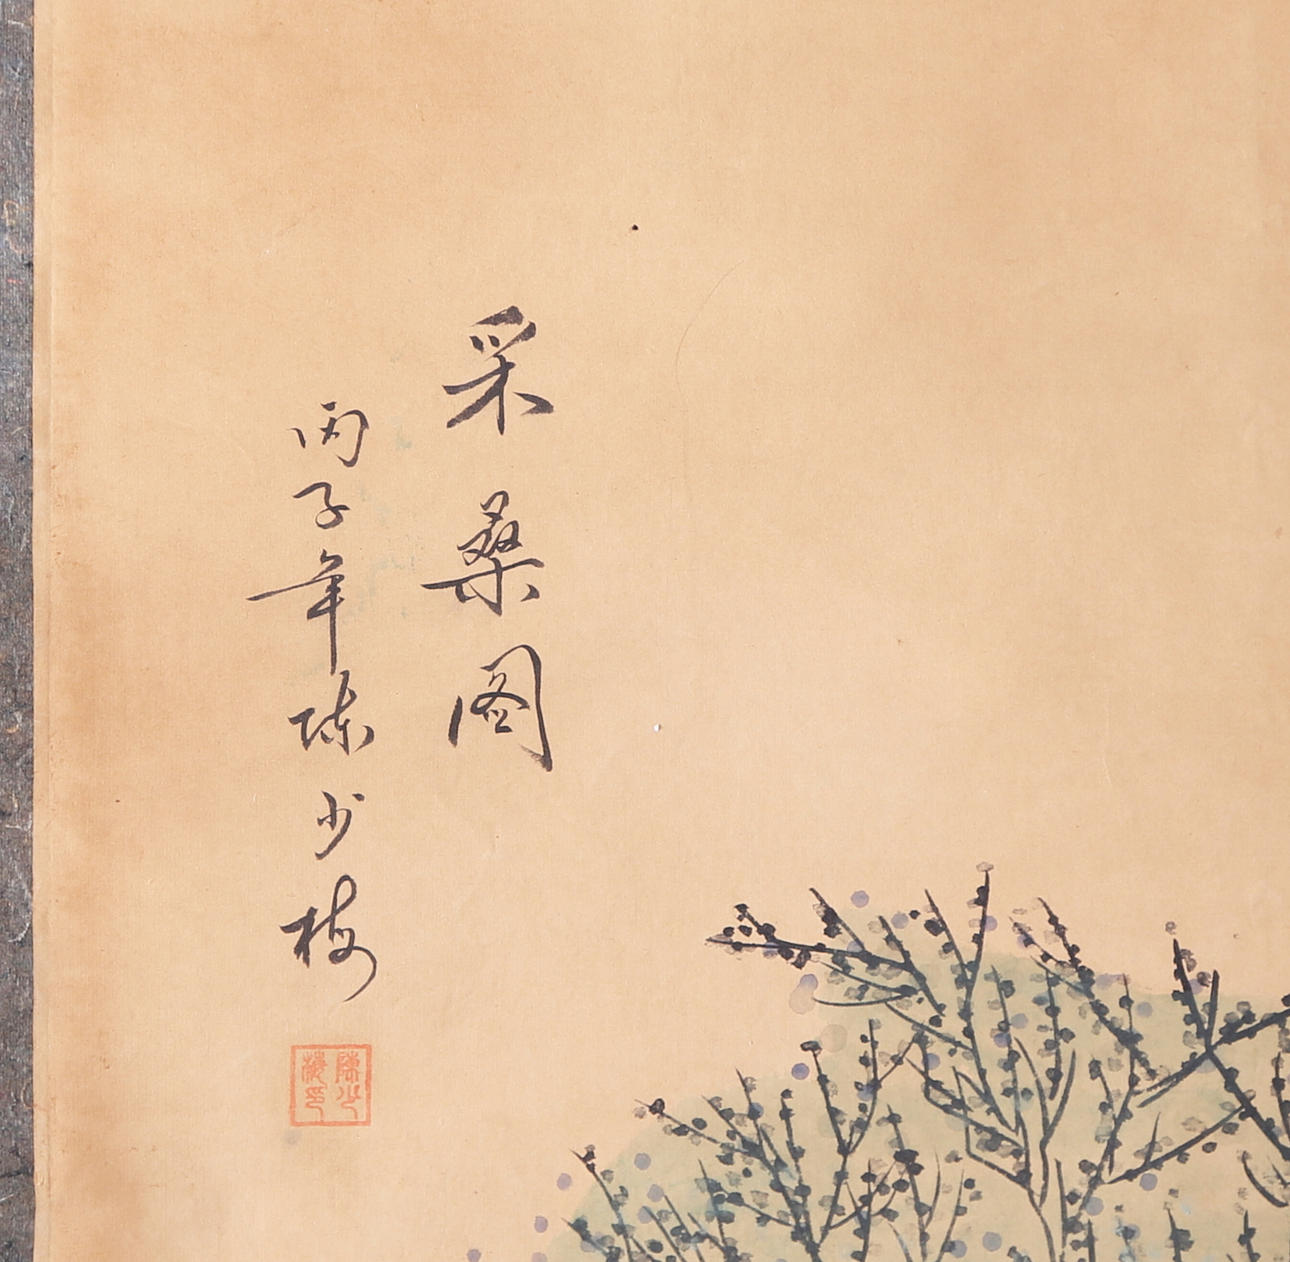 采桑图
丙子年陈少梅
陳少梅印